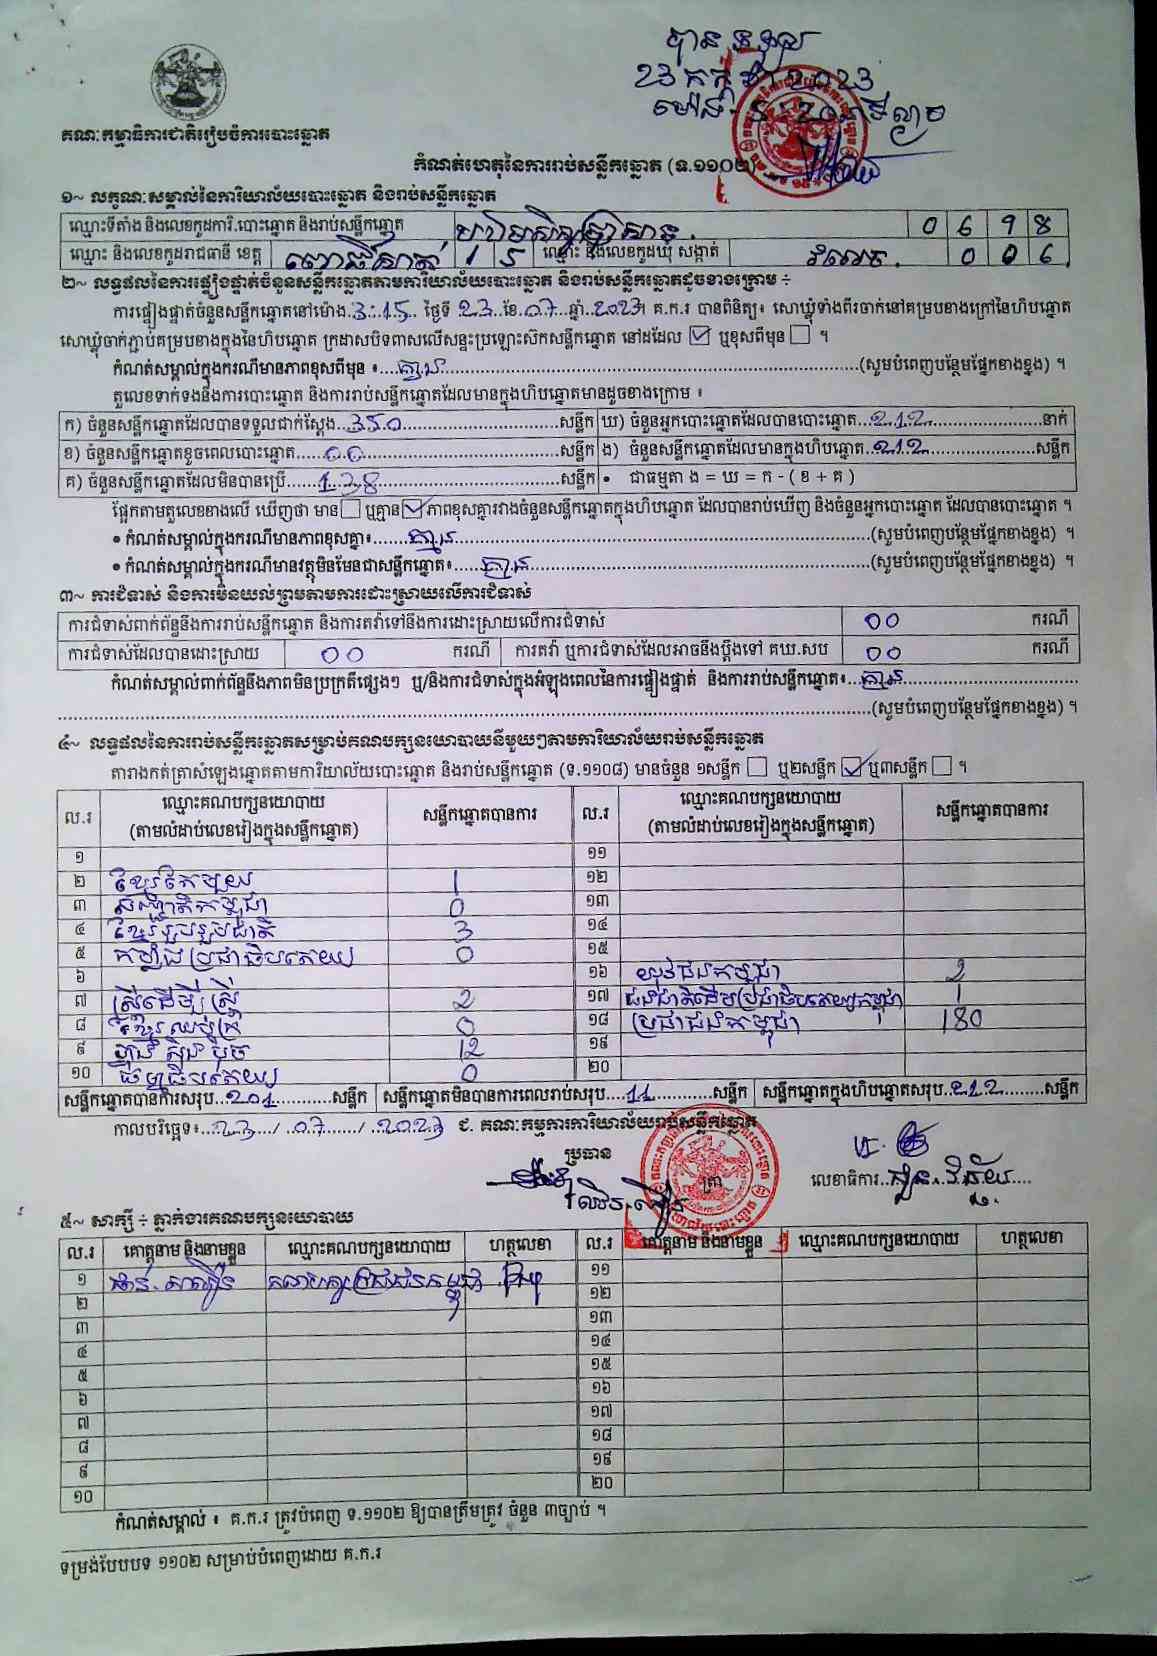 បានទទួល
គណៈកម្មាធិការជាតិរៀបចំការបោះឆ្នោត
កំណត់ហេតុនៃការរាប់សន្លឹកឆ្នោត (ទ.១១០២)
១~ លក្ខណៈសម្គាល់នៃការិយាល័យបោះឆ្នោត និងរាប់សន្លឹកឆ្នោត
ឈ្មោះទីតាំង និងលេខកូដការិ.បោះឆ្នោត និងរាប់សន្លឹកឆ្នោត 0 6 9 8
ឈ្មោះ និងលេខកូដរាជធានី ខេត្ត ពោធិ៍សាត់ 1 5 ឈ្មោះ និងលេខកូដឃុំ សង្កាត់ រំលេច 0 0 6
២~ លទ្ធផលនៃការផ្ទៀងផ្ទាត់ចំនួនសន្លឹកឆ្នោតតាមការិយាល័យបោះឆ្នោត និងរាប់សន្លឹកឆ្នោតដូចខាងក្រោម ÷
ការផ្ទៀងផ្ទាត់ចំនួនសន្លឹកឆ្នោតនៅម៉ោង 3:15 ថ្ងៃទី 23 ខែ 07 ឆ្នាំ 2023 គ.ក.រ បានពិនិត្យ៖ សោឃ្លុំទាំងពីរចាក់នៅគម្របខាងក្រៅនៃហិបឆ្នោត
សោឃ្លុំចាក់ភ្ជាប់គម្របខាងក្នុងនៃហិបឆ្នោត ក្រដាសបិទពាសលើសន្ទះប្រឡោះស៊កសន្លឹកឆ្នោត នៅដដែល ☑ ឬខុសពីមុន ☐ ។
កំណត់សម្គាល់ក្នុងករណីមានភាពខុសពីមុន ៖ គ្មាន (សូមបំពេញបន្ថែមផ្នែកខាងខ្នង) ។
តួលេខទាក់ទងនឹងការបោះឆ្នោត និងការរាប់សន្លឹកឆ្នោតដែលមានក្នុងហិបឆ្នោតមានដូចខាងក្រោម ៖
ក) ចំនួនសន្លឹកឆ្នោតដែលបានទទួលជាក់ស្តែង 350 សន្លឹក ឃ) ចំនួនអ្នកបោះឆ្នោតដែលបានបោះឆ្នោត 212 នាក់
ខ) ចំនួនសន្លឹកឆ្នោតខូចពេលបោះឆ្នោត 00 សន្លឹក ង) ចំនួនសន្លឹកឆ្នោតដែលមានក្នុងហិបឆ្នោត 212 សន្លឹក
គ) ចំនួនសន្លឹកឆ្នោតដែលមិនបានប្រើ 138 សន្លឹក • ជាធម្មតា ង = ឃ = ក - ( ខ + គ )
ផ្អែកតាមតួលេខខាងលើ ឃើញថា មាន ☐ ឬគ្មាន ☑ ភាពខុសគ្នារវាងចំនួនសន្លឹកឆ្នោតក្នុងហិបឆ្នោត ដែលបានរាប់ឃើញ និងចំនួនអ្នកបោះឆ្នោត ដែលបានបោះឆ្នោត ។
• កំណត់សម្គាល់ក្នុងករណីមានភាពខុសគ្នា៖ គ្មាន (សូមបំពេញបន្ថែមផ្នែកខាងខ្នង) ។
• កំណត់សម្គាល់ក្នុងករណីមានវត្ថុមិនមែនជាសន្លឹកឆ្នោត៖ គ្មាន (សូមបំពេញបន្ថែមផ្នែកខាងខ្នង) ។
៣~ ការជំទាស់ និងការមិនយល់ព្រមតាមការដោះស្រាយលើការជំទាស់
ការជំទាស់ពាក់ព័ន្ធនឹងការរាប់សន្លឹកឆ្នោត និងការតវ៉ាទៅនឹងការដោះស្រាយលើការជំទាស់ 00 ករណី
ការជំទាស់ដែលបានដោះស្រាយ 00 ករណី ការតវ៉ា ឬការជំទាស់ដែលអាចនឹងប្តឹងទៅ គឃ.សប 00 ករណី
កំណត់សម្គាល់ពាក់ព័ន្ធនឹងភាពមិនប្រក្រតីផ្សេងៗ ឬ/និងការជំទាស់ក្នុងអំឡុងពេលនៃការផ្ទៀងផ្ទាត់ និងការរាប់សន្លឹកឆ្នោត៖ គ្មាន
(សូមបំពេញបន្ថែមផ្នែកខាងខ្នង) ។
៤~ លទ្ធផលនៃការរាប់សន្លឹកឆ្នោតសម្រាប់គណបក្សនយោបាយនីមួយៗតាមការិយាល័យរាប់សន្លឹកឆ្នោត
តារាងកត់ត្រាសំឡេងឆ្នោតតាមការិយាល័យបោះឆ្នោត និងរាប់សន្លឹកឆ្នោត (ទ.១១០៨) មានចំនួន ១សន្លឹក ☐ ឬ២សន្លឹក ☑ ឬ៣សន្លឹក ☐ ។
ល.រ ឈ្មោះគណបក្សនយោបាយ (តាមលំដាប់លេខរៀងក្នុងសន្លឹកឆ្នោត) សន្លឹកឆ្នោតបានការ ល.រ ឈ្មោះគណបក្សនយោបាយ (តាមលំដាប់លេខរៀងក្នុងសន្លឹកឆ្នោត) សន្លឹកឆ្នោតបានការ
១ ១១
២ ខ្មែរតែមួយ 1 ១២
៣ សញ្ជាតិកម្ពុជា 0 ១៣
៤ ខ្មែររួបរួមជាតិ 3 ១៤
៥ កម្លាំងប្រជាធិបតេយ្យ 0 ១៥
៦ ១៦ យុវជនកម្ពុជា 2
៧ ស្ត្រីដើម្បីស្ត្រី 2 ១៧ ជនជាតិដើមប្រជាធិបតេយ្យកម្ពុជា 1
៨ ខ្មែរឈប់ក្រ 0 ១៨ ប្រជាជនកម្ពុជា 180
៩ ហ្វ៊ុនស៊ិនប៉ិច 12 ១៩
១០ ធម្មាធិបតេយ្យ 0 ២០
សន្លឹកឆ្នោតបានការសរុប 201 សន្លឹក សន្លឹកឆ្នោតមិនបានការពេលរាប់សរុប 11 សន្លឹក សន្លឹកឆ្នោតក្នុងហិបឆ្នោតសរុប 212 សន្លឹក
កាលបរិច្ឆេទ៖ 23 / 07 / 2023 ជ. គណៈកម្មការការិយាល័យរាប់សន្លឹកឆ្នោត
ប្រធាន
ត្រា
លេខាធិការ
៥~ សាក្សី ÷ ភ្នាក់ងារគណបក្សនយោបាយ
ល.រ គោត្តនាម និងនាមខ្លួន ឈ្មោះគណបក្សនយោបាយ ហត្ថលេខា ល.រ គោត្តនាម និងនាមខ្លួន ឈ្មោះគណបក្សនយោបាយ ហត្ថលេខា
១ គណបក្សប្រជាជនកម្ពុជា ១១
២ ១២
៣ ១៣
៤ ១៤
៥ ១៥
៦ ១៦
៧ ១៧
៨ ១៨
៩ ១៩
១០ ២០
កំណត់សម្គាល់ ៖ គ.ក.រ ត្រូវបំពេញ ទ.១១០២ ឱ្យបានត្រឹមត្រូវ ចំនួន ៣ច្បាប់ ។
ទម្រង់បែបបទ ១១០២ សម្រាប់បំពេញដោយ គ.ក.រ